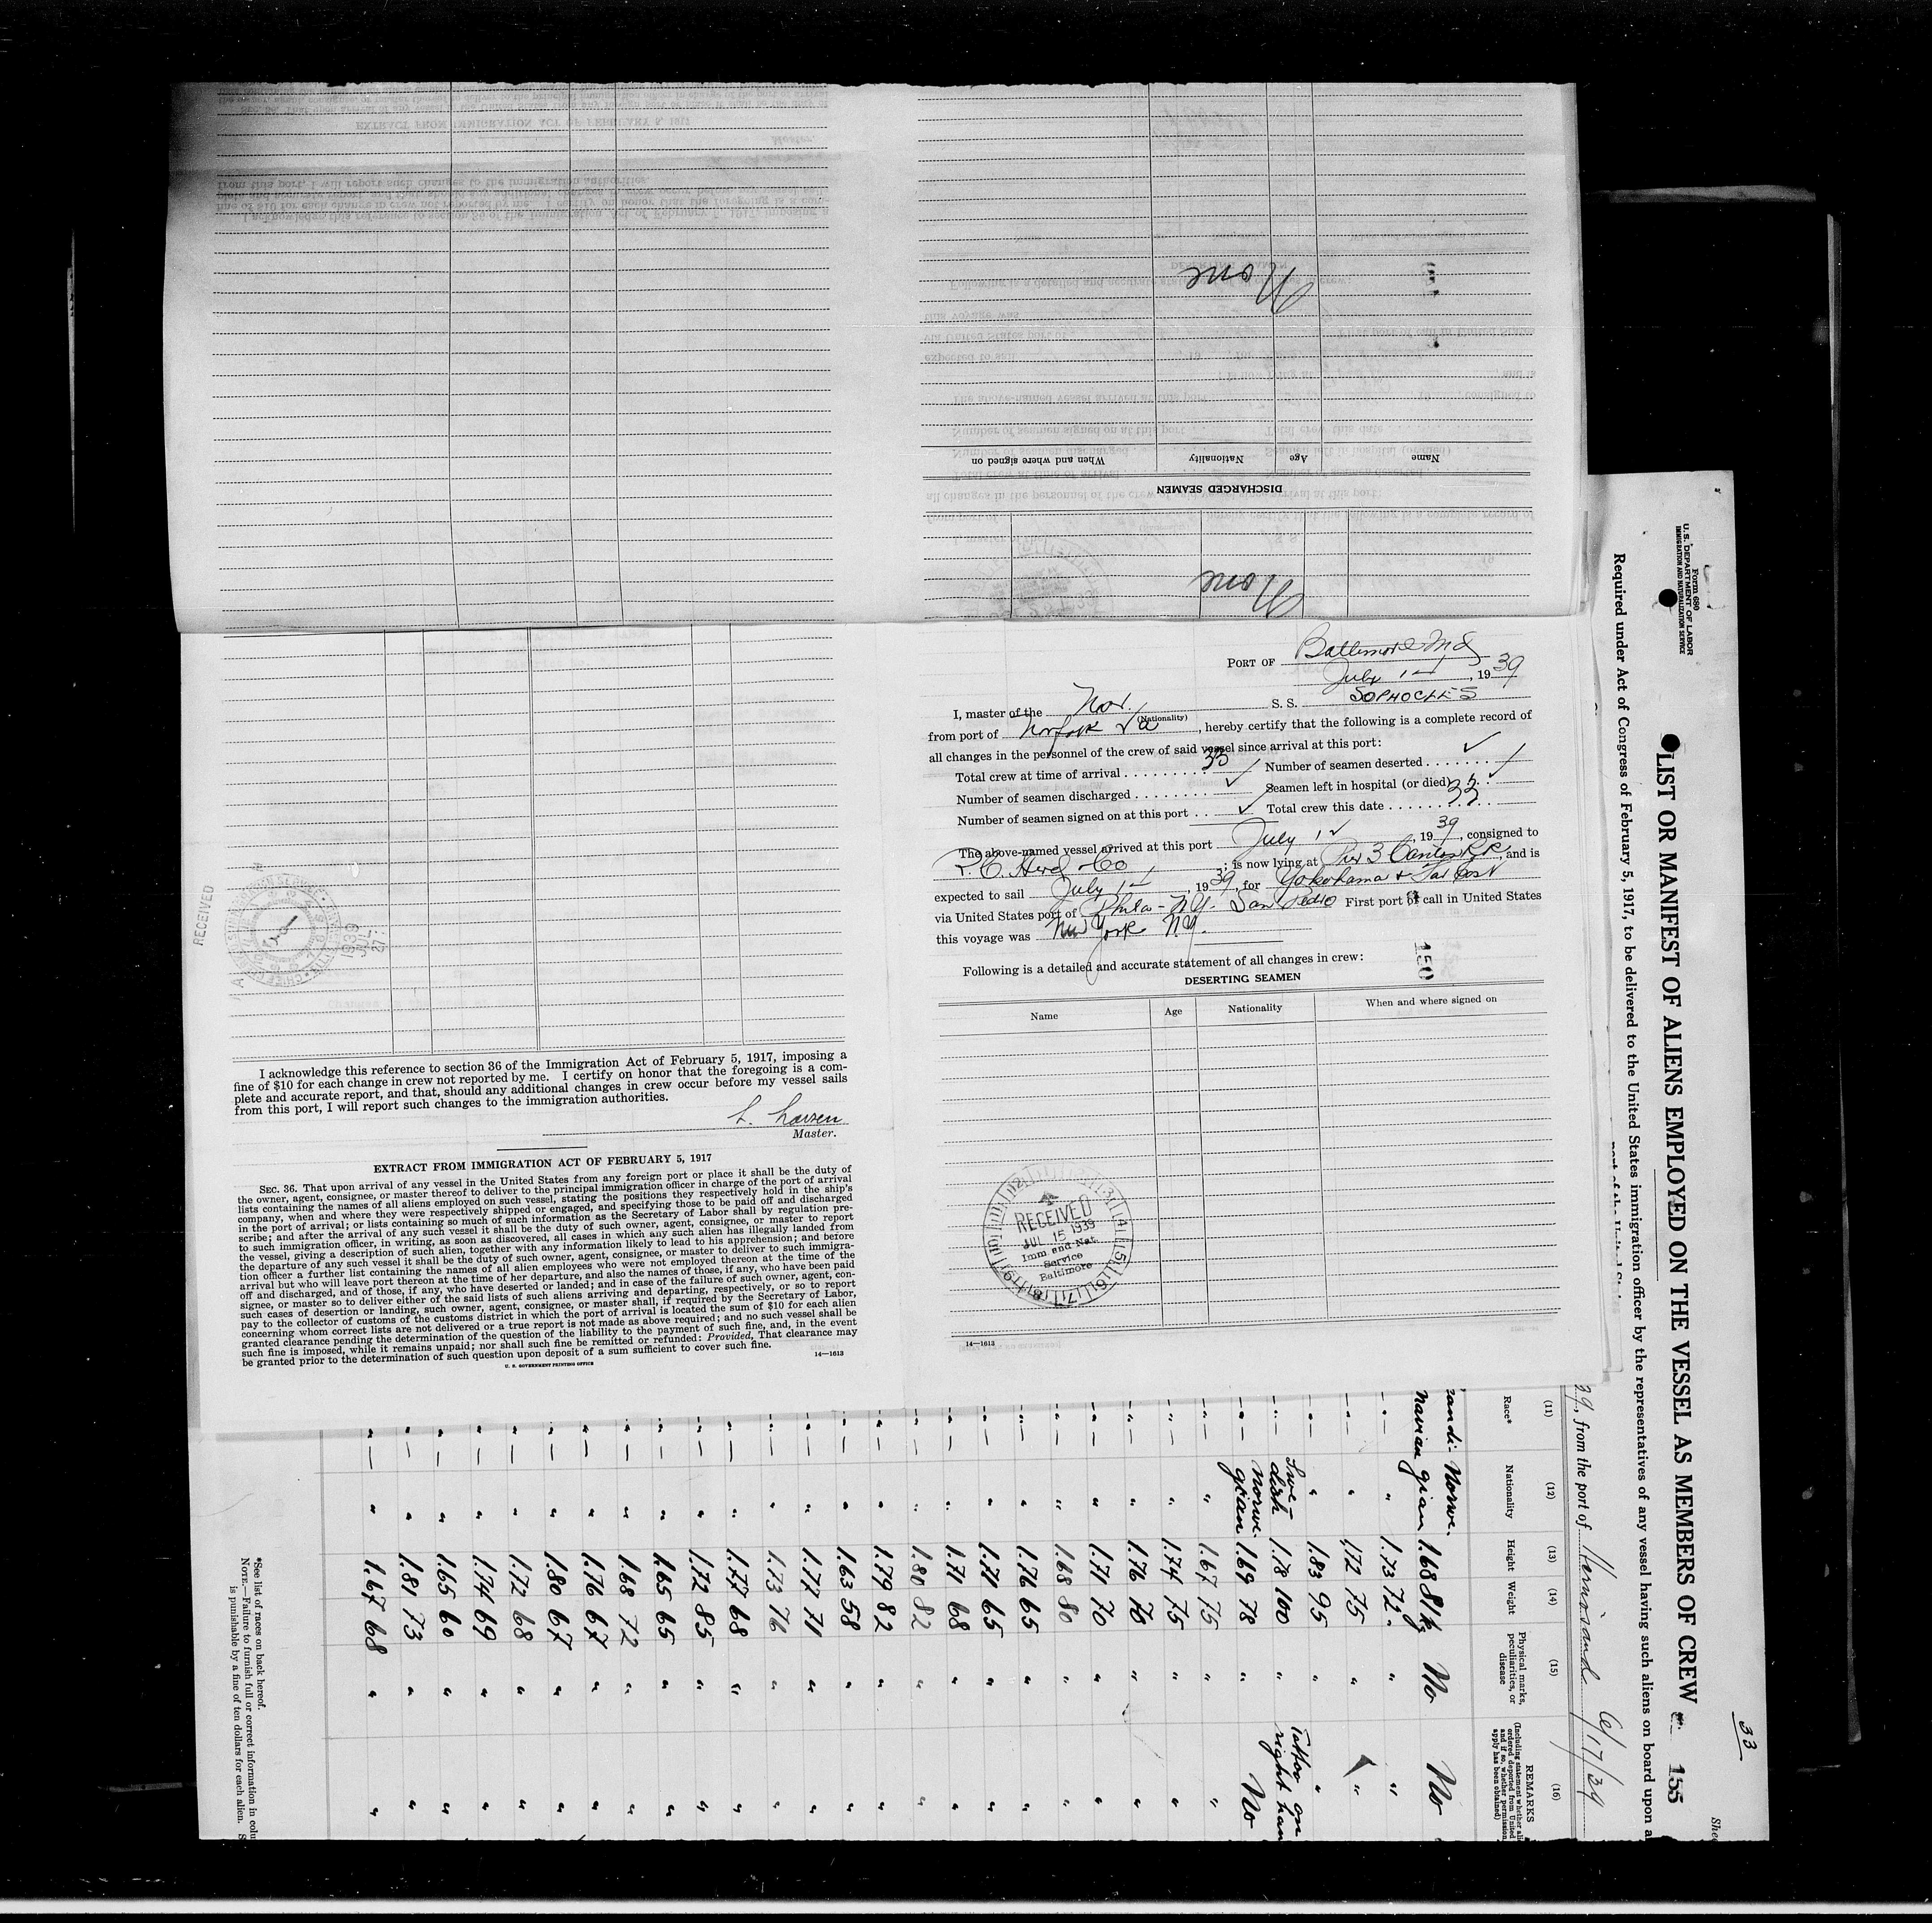 None
None
DISCHARGED SEAMEN
Name Age Nationality When and where signed on
PORT OF Baltimore Md
July 1, 1939
I, master of the Nor. S. S. SOPHOCLES
(Nationality)
from port of Norfolk Va, hereby certify that the following is a complete record of
all changes in the personnel of the crew of said vessel since arrival at this port:
Total crew at time of arrival 33 Number of seamen deserted ✓
Number of seamen discharged ✓ Seamen left in hospital (or died) ✓
Number of seamen signed on at this port ✓ Total crew this date 33
The above-named vessel arrived at this port July 1, 1939, consigned to
Co; is now lying at Pier 3 Canton R.R., and is
expected to sail July 1, 1939, for Yokohama + Far East
via United States port of Phila - N.Y. San Pedro First port of call in United States
this voyage was New York N.Y.
150
Following is a detailed and accurate statement of all changes in crew:
DESERTING SEAMEN
Name Age Nationality When and where signed on
RECEIVED
JUL 15 1939
Imm. and Nat.
Service
Baltimore
14—1613
RECEIVED
1939
JUL
27
I acknowledge this reference to section 36 of the Immigration Act of February 5, 1917, imposing a
fine of $10 for each change in crew not reported by me. I certify on honor that the foregoing is a com-
plete and accurate report, and that, should any additional changes in crew occur before my vessel sails
from this port, I will report such changes to the immigration authorities.
L. Larsen
Master.
EXTRACT FROM IMMIGRATION ACT OF FEBRUARY 5, 1917
SEC. 36. That upon arrival of any vessel in the United States from any foreign port or place it shall be the duty of
the owner, agent, consignee, or master thereof to deliver to the principal immigration officer in charge of the port of arrival
lists containing the names of all aliens employed on such vessel, stating the positions they respectively hold in the ship's
company, when and where they were respectively shipped or engaged, and specifying those to be paid off and discharged
in the port of arrival; or lists containing so much of such information as the Secretary of Labor shall by regulation pre-
scribe; and after the arrival of any such vessel it shall be the duty of such owner, agent, consignee, or master to report
to such immigration officer, in writing, as soon as discovered, all cases in which any such alien has illegally landed from
the vessel, giving a description of such alien, together with any information likely to lead to his apprehension; and before
the departure of any such vessel it shall be the duty of such owner, agent, consignee, or master to deliver to such immigra-
tion officer a further list containing the names of all alien employees who were not employed thereon at the time of the
arrival but who will leave port thereon at the time of her departure, and also the names of those, if any, who have been paid
off and discharged, and of those, if any, who have deserted or landed; and in case of the failure of such owner, agent, con-
signee, or master so to deliver either of the said lists of such aliens arriving and departing, respectively, or so to report
such cases of desertion or landing, such owner, agent, consignee, or master shall, if required by the Secretary of Labor,
pay to the collector of customs of the customs district in which the port of arrival is located the sum of $10 for each alien
concerning whom correct lists are not delivered or a true report is not made as above required; and no such vessel shall be
granted clearance pending the determination of the question of the liability to the payment of such fine, and, in the event
such fine is imposed, while it remains unpaid; nor shall such fine be remitted or refunded: Provided, That clearance may
be granted prior to the determination of such question upon deposit of a sum sufficient to cover such fine.
U. S. GOVERNMENT PRINTING OFFICE
14—1613
Form 680
U. S. DEPARTMENT OF LABOR
IMMIGRATION AND NATURALIZATION SERVICE
33
LIST OR MANIFEST OF ALIENS EMPLOYED ON THE VESSEL AS MEMBERS OF CREW 155
Required under Act of Congress of February 5, 1917, to be delivered to the United States immigration officer by the representatives of any vessel having such aliens on board upon a
39, from the port of Hernosand 6/17/39
(11) (12) (13) (14) (15) (16)
Race* Nationality Height Weight Physical marks, peculiarities, or disease REMARKS
andi- Norwe-
navian gian 1.68 81½ No No
" — " 1.73 72 " "
" — " 1.72 75 " "
" — " 1.83 95 " "
" — Swe-dish 1.78 100 " Tattoo on right han
" — Norwe-gian 1.69 78 " No
" — " 1.67 75 " "
" — " 1.74 75 " "
" — " 1.76 70 " "
" — " 1.71 70 " "
" — " 1.68 80 " "
" — " 1.76 65 " "
" — " 1.71 65 " "
" — " 1.71 68 " "
" — " 1.80 82 " "
" — " 1.79 82 " "
" — " 1.63 58 " "
" — " 1.77 71 " "
" — " 1.73 76 " "
" — " 1.77 68 " "
" — " 1.72 85 " "
" — " 1.65 65 " "
" — " 1.68 72 " "
" — " 1.76 67 " "
" — " 1.80 67 " "
" — " 1.72 68 " "
" — " 1.74 69 " "
" — " 1.65 60 " "
" — " 1.81 73 " "
" — " 1.67 68 " "
*See list of races on back hereof.
NOTE.—Failure to furnish full or correct information in colu
is punishable by a fine of ten dollars for each alien.